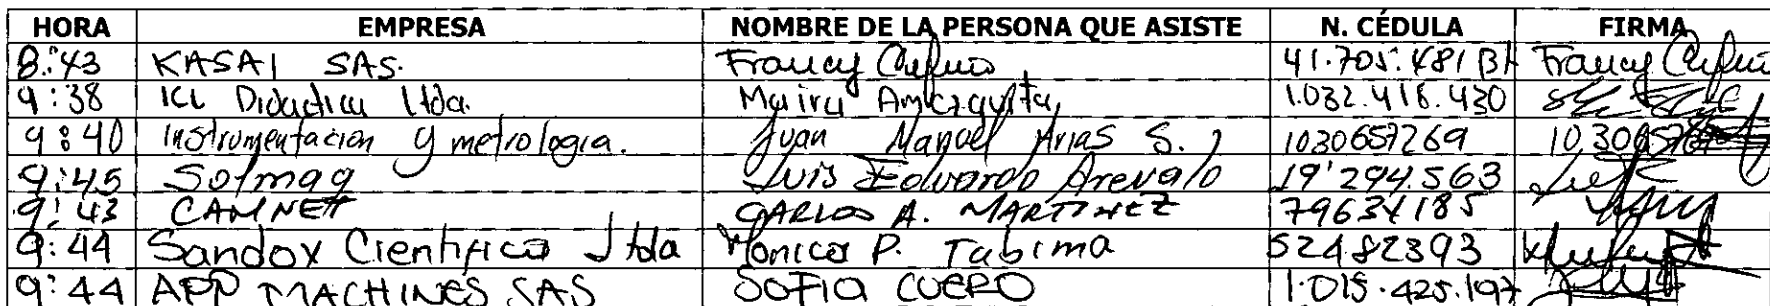 HORA EMPRESA NOMBRE DE LA PERSONA QUE ASISTE N. CÉDULA FIRMA
8:43 KASAI SAS. Francy 41.705.481 Bt Francy
9:38 ICL Didactica ltda. 1.032.416.430
9:40 Instrumentacion y metrologia. Juan Manuel Arias S. 1030657269
9:45 Solmaq Luis Eduardo Arevalo 19'294.563
9:43 CAMNET CARLOS A. MARTINEZ 79634185
9:44 Sandox Cientifica Ltda Monica P. Tabima 52482393
9:44 APP MACHINES SAS SOFIA CUERO 1.015.425.197